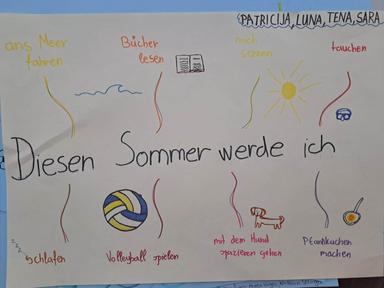 PATRICIJA, LUNA, TENA, SARA
ans Meer
fahren
Bücher
lesen
mich
sonnen
tauchen
Diesen Sommer werde ich
zzz
schlafen
Volleyball spielen
mit dem Hund
spazieren gehen
Pfannkuchen
machen